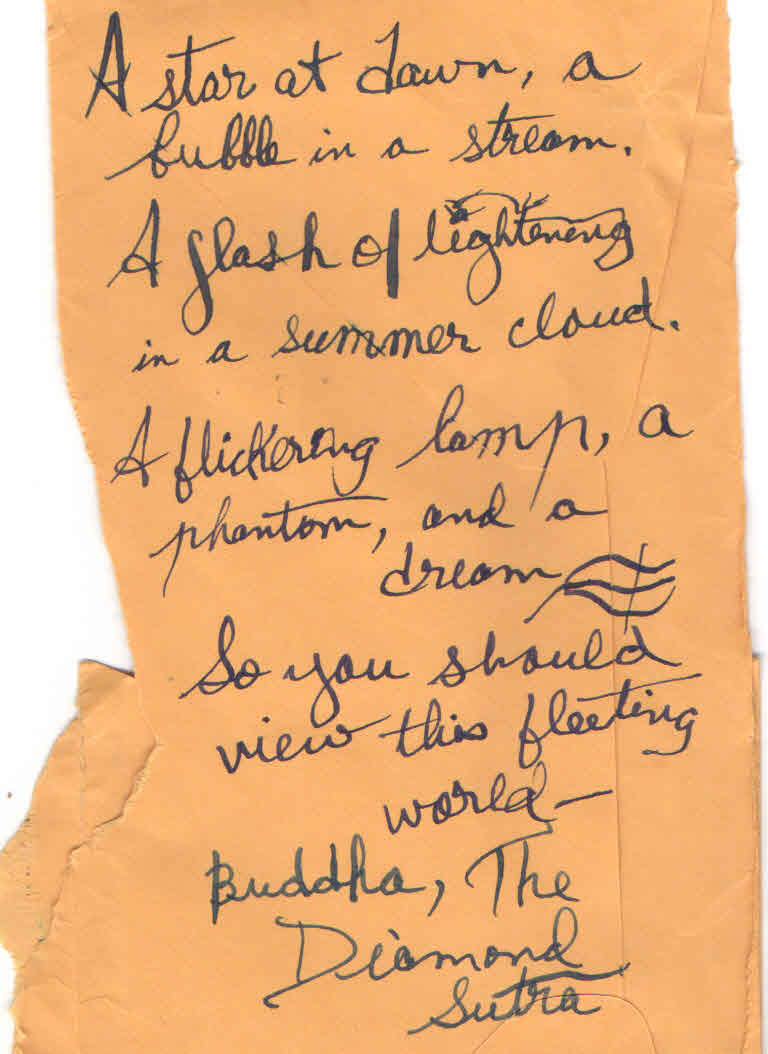 A star at dawn, a
bubble in a stream.
A flash of lightening
in a summer cloud.
A flickering lamp, a
phantom, and a
dream
So you should
view this fleeting
world—
Buddha, The
Diamond
Sutra